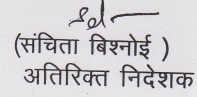 (संचिता बिश्नोई )
अतिरिक्त निदेशक